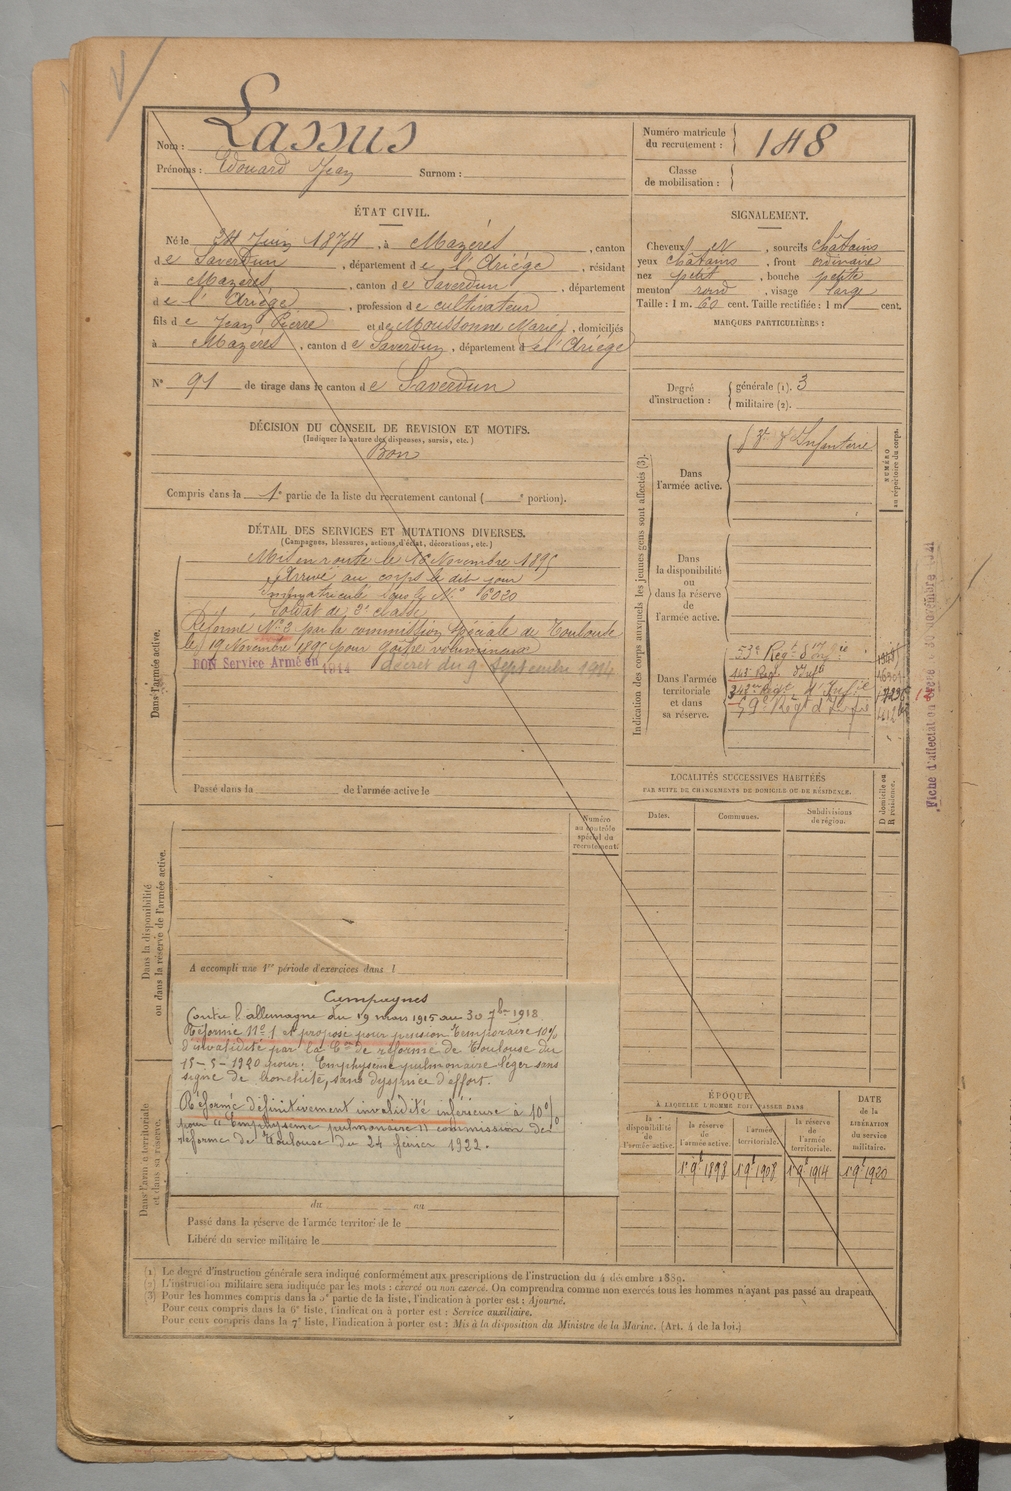 Nom : Lassus
Prénoms : Edouard Jean Surnom :
Numéro matricule
du recrutement : 148
Classe
de mobilisation :
ÉTAT CIVIL.
Né le 24 Juin 1874, à Mazères, canton
de Saverdun, département de l'Ariège, résidant
à Mazères, canton de Saverdun, département
de l'Ariège, profession de cultivateur
fils de Jean Pierre et de Moussonne Marie, domiciliés
à Mazères, canton de Saverdun, département de l'Ariège
N° 91 de tirage dans le canton de Saverdun
SIGNALEMENT.
Cheveux N, sourcils châtains
yeux châtains, front ordinaire
nez petit, bouche petite
menton rond, visage large
Taille : 1 m. 60 cent. Taille rectifiée : 1 m cent.
MARQUES PARTICULIÈRES :
Degré
d'instruction :
générale (1). 3
militaire (2).
DÉCISION DU CONSEIL DE REVISION ET MOTIFS.
(Indiquer la nature des dispenses, sursis, etc.)
Bon
Compris dans la 1e partie de la liste du recrutement cantonal ( e portion).
DÉTAIL DES SERVICES ET MUTATIONS DIVERSES.
(Campagnes, blessures, actions d'éclat, décorations, etc.)
Dans l'armée active.
Mis en route le 16 Novembre 1895
Arrivé au corps le dit jour
Immatriculé sous le N° 6020
Soldat de 2e classe
Réformé N° 2 par la commission spéciale de Toulouse
le 19 Novembre 1895 pour goitre volumineux
BON Service Armé en 1914 décret du 9 Septembre 1914
Passé dans la de l'armée active le
Indication des corps auxquels les jeunes gens sont affectés (3).
NUMÉRO
au répertoire du corps.
Dans
l'armée active.
d'Infanterie
Dans
la disponibilité
ou
dans la réserve
de
l'armée active.
Dans l'armée
territoriale
et dans
sa réserve.
53e Regt d'Infie
143e Regt d'Infie
343me Regt d'Infie
59e Regt d'Infie
Fiche d'affectat on crevé le 30 novembre 1921
LOCALITÉS SUCCESSIVES HABITÉES
PAR SUITE DE CHANGEMENTS DE DOMICILE OU DE RÉSIDENCE.
Dates.
Communes.
Subdivisions
de région.
D domicile ou
R résidence.
Dans la disponibilité
ou dans la réserve de l'armée active.
Numéro
au contrôle
spécial du
recrutement.
A accompli une 1re période d'exercices dans l
Campagnes
Contre l'allemagne du 19 mars 1915 au 30 7bre 1918
Réformé N° 1 et proposé pour pension temporaire 10%
d'invalidité par la Con de réforme de Toulouse du
15-5-1920 pour: Emphysème pulmonaire léger sans
signe de bronchite, sans dyspnée d'effort.
Réformé définitivement invalidité inférieure à 10%
pour "Emphysème pulmonaire" commission de
réforme de Toulouse du 24 février 1922.
Dans l'armée territoriale
et dans sa réserve.
du au
Passé dans la réserve de l'armée territoriale le
Libéré du service militaire le
ÉPOQUE
À LAQUELLE L'HOMME DOIT PASSER DANS
la
disponibilité
de
l'armée active.
la réserve
de
l'armée active.
l'armée
territoriale.
la réserve
de
l'armée
territoriale.
DATE
de la
LIBÉRATION
du service
militaire.
1er 9t 1898 1er 9t 1908 1er 9t 1914 1er 9t 1920
(1) Le degré d'instruction générale sera indiqué conformément aux prescriptions de l'instruction du 4 décembre 1889.
(2) L'instruction militaire sera indiquée par les mots : exercé ou non exercé. On comprendra comme non exercés tous les hommes n'ayant pas passé au drapeau.
(3) Pour les hommes compris dans la 5e partie de la liste, l'indication à porter est : Ajourné.
Pour ceux compris dans la 6e liste, l'indication à porter est : Service auxiliaire.
Pour ceux compris dans la 7e liste, l'indication à porter est : Mis à la disposition du Ministre de la Marine. (Art. 4 de la loi.)